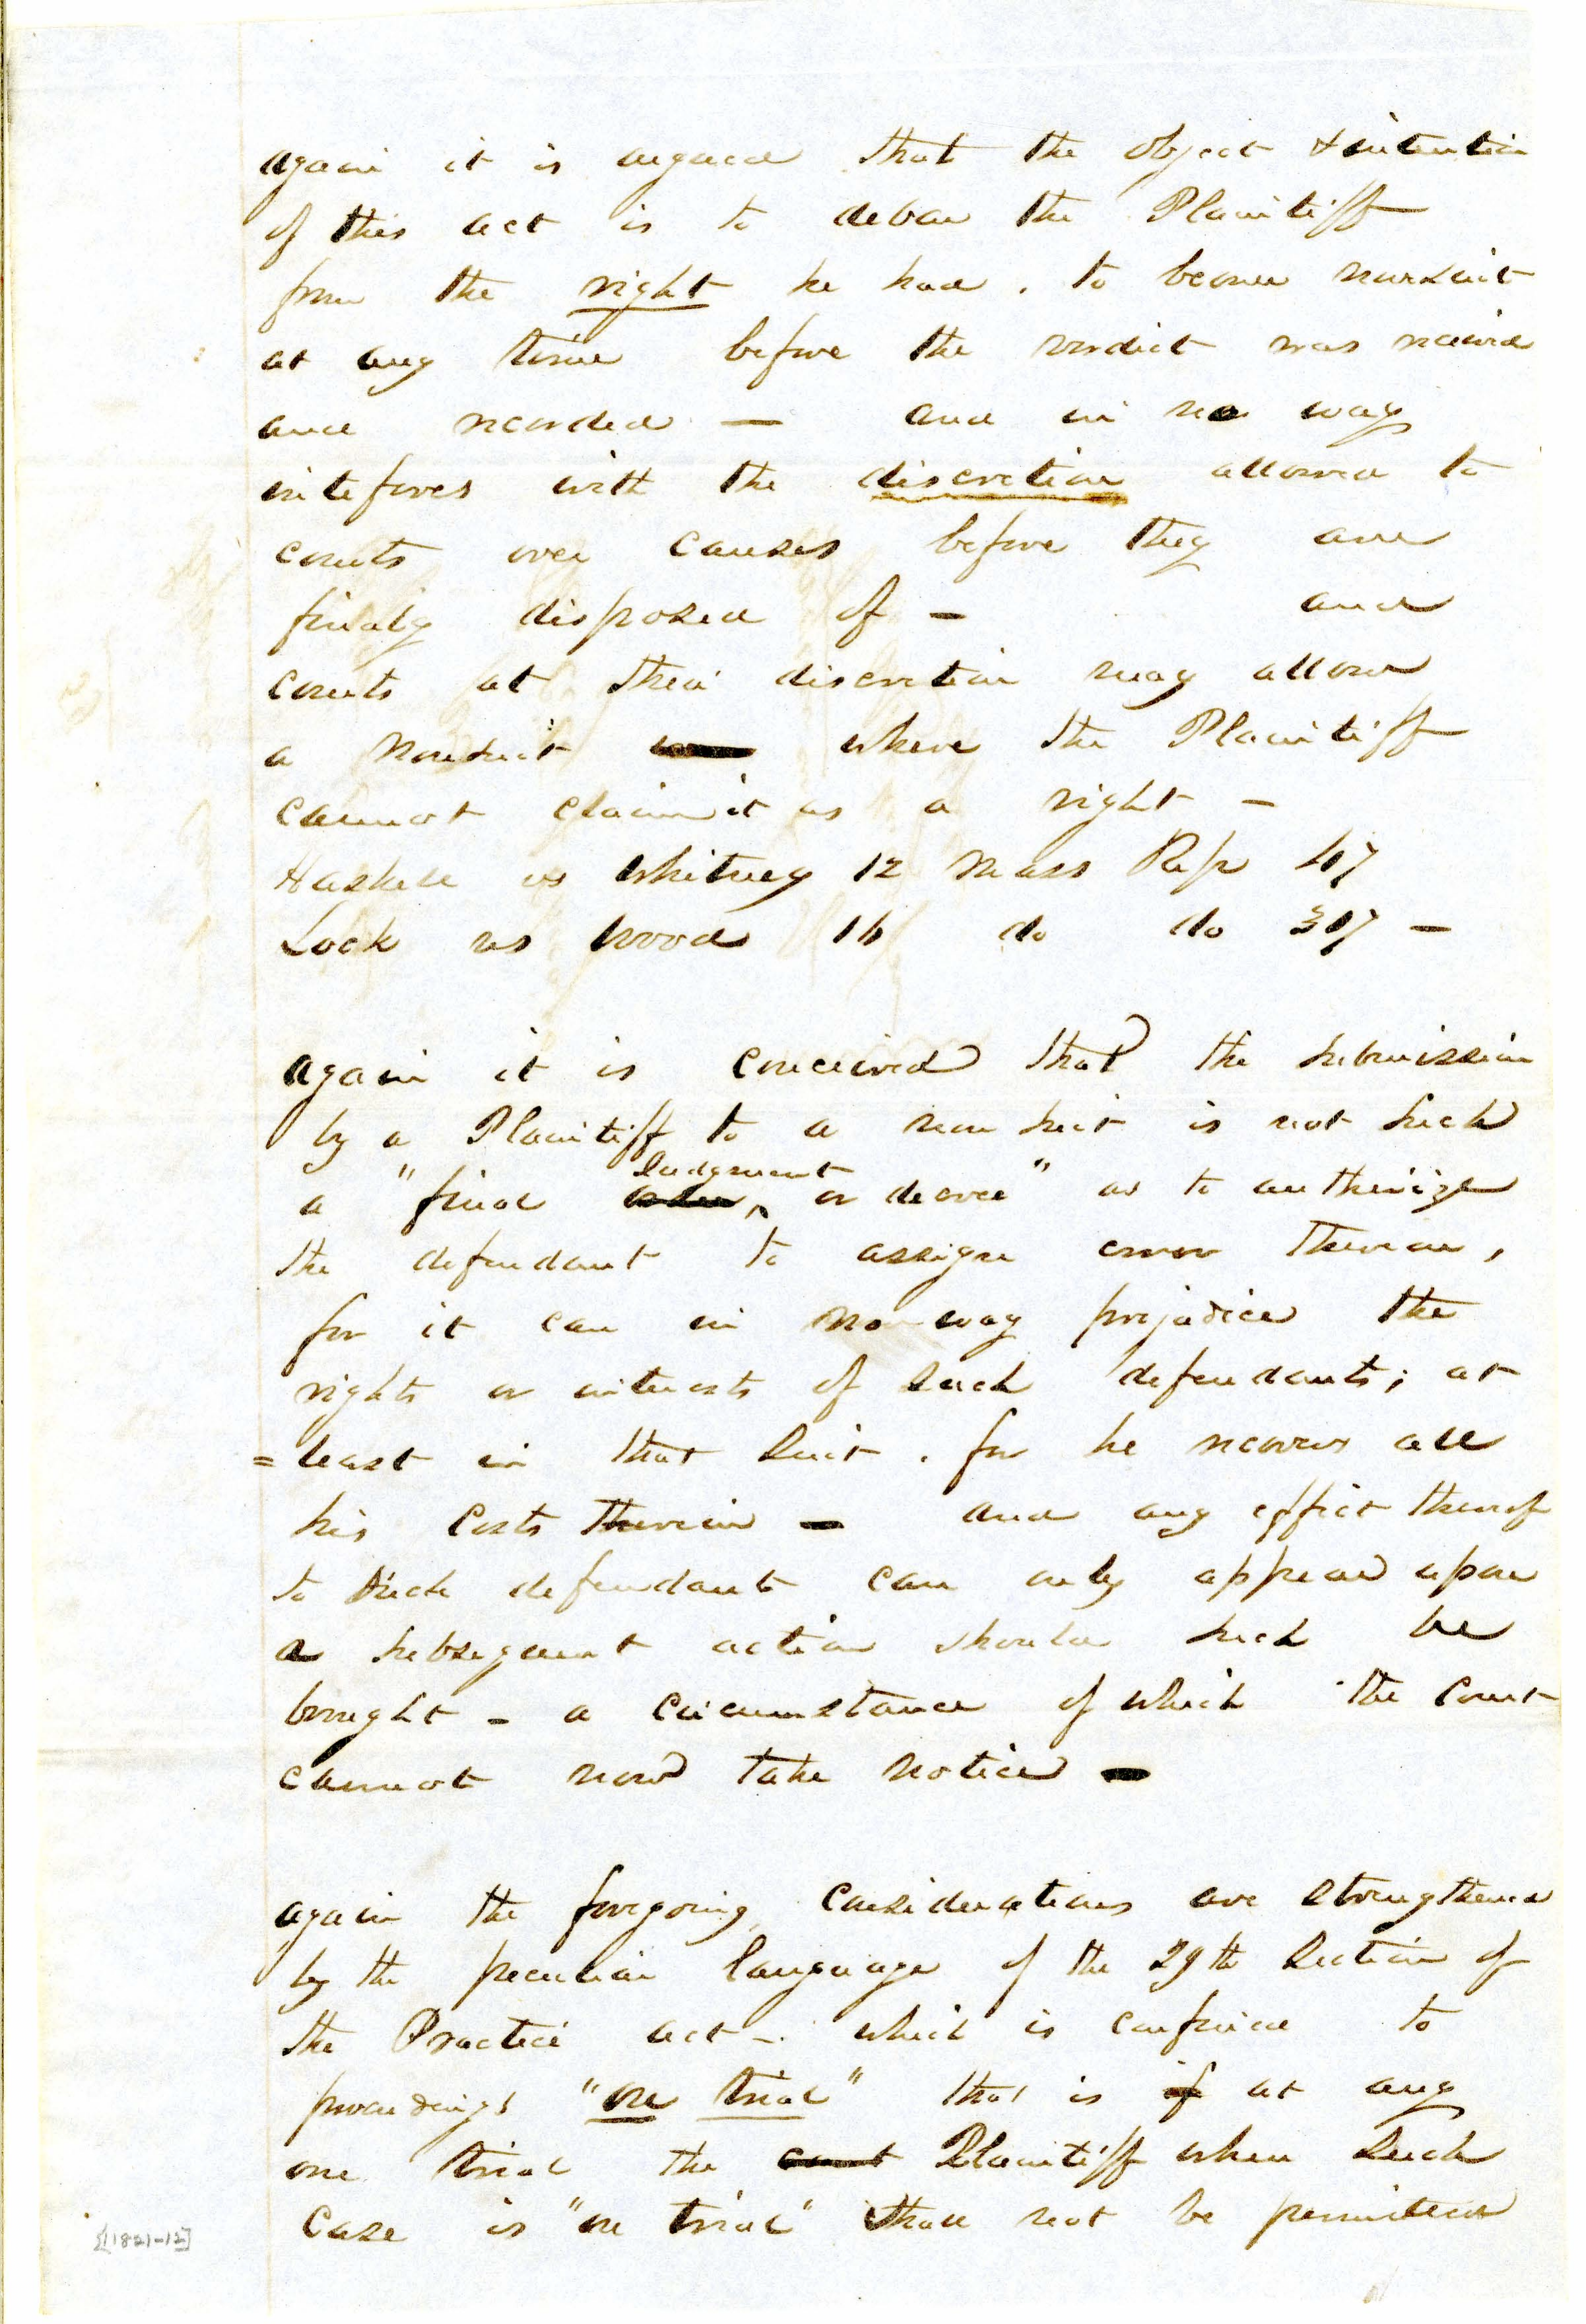 again it is argued that the object & intention
of this act is to debar the Plaintiff
from the right he had . to become nonsuit
at any time before the verdict was received
and recorded — and in no way
inteferes with the discretion allowed to
courts over causes before they are
finaly disposed of — and
courts at their discretion may allow
a Nonsuit where the Plaintiff
cannot claim it as a right —
Haskell vs Whitney 12 Mass Rep 47
Lock vs Wood 16 do do 317 —
again it is conceived that the submission
by a Plaintiff to a non suit is not such
Judgment
a "final or decree" as to authorize
the defendant to assign error thereon,
for it can in no way prejudice the
rights or interests of such defendants; at
= least in that Suit . for he recovers all
his Costs therein — and any effect thereof
to such defendant can only appear upon
a subsequent action should such be
brought – a circumstance of which the Court
cannot now take notice —
again the foregoing considerations are strengthened
by the peculiar language of the 29th Section of
the Practice act – which is confined to
proceedings "on trial" that is if at any
one trial the court Plaintiff when such
Case is "on trial" shall not be permitted
[11821-12]